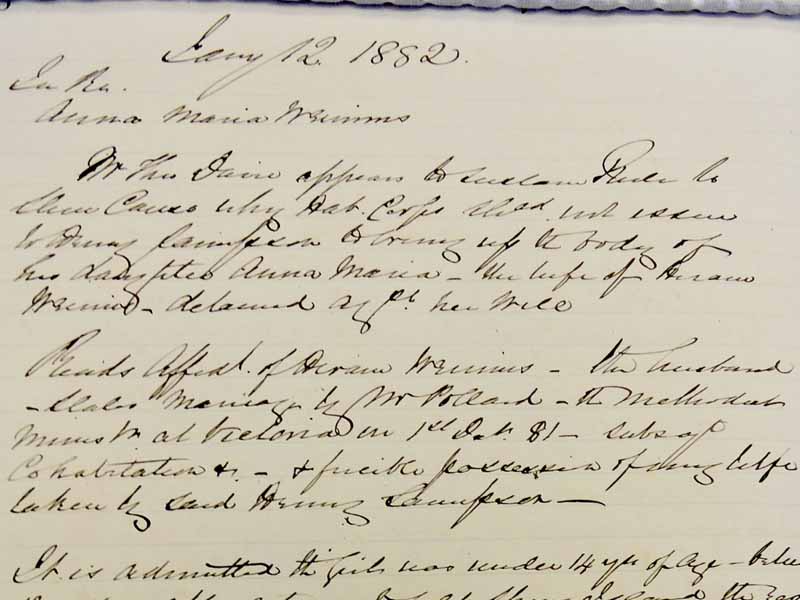 Jany 12. 1882.
In Re.
Anna Maria Wemms
Mr Theo Davie appears to sustain Rule to
Shew Cause why Hab. Corps shd. not issue
to Henry Sampson to bring up the body of
his daughter Anna Maria - the wife of Hiram
- detained agst. her Will
Reads Affidt. of Hiram - the husband
- States Marriage by Mr Pollard - the Methodist
Minister at Victoria on 1st Oct. 81 - subsqt
Cohabitation &c. - & forcible possession of my Wife
taken by said Henry Sampson -
It is admitted the Girl was under 14 yrs of age -